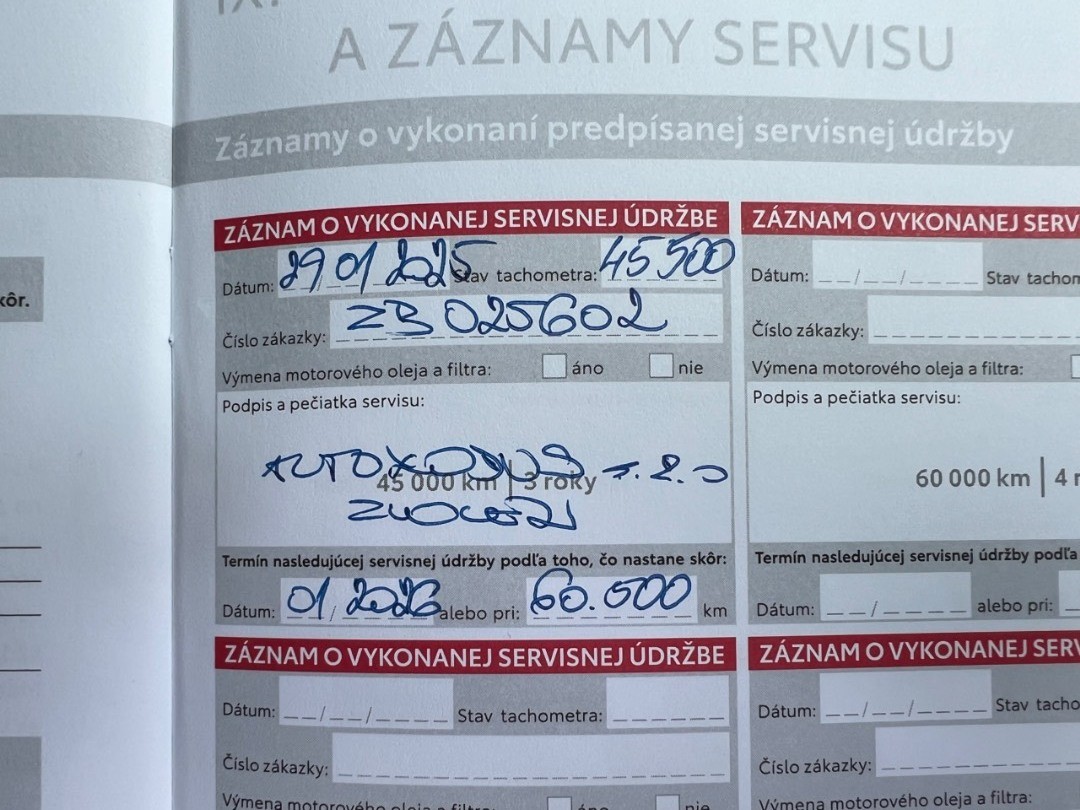 A ZÁZNAMY SERVISU
Záznamy o vykonaní predpísanej servisnej údržby
kôr.
ZÁZNAM O VYKONANEJ SERVISNEJ ÚDRŽBE
Dátum: 29 01 2025 Stav tachometra: 45 500
Číslo zákazky: ZB 025602
Výmena motorového oleja a filtra: áno nie
Podpis a pečiatka servisu:
45 000 km | 3 roky
Termín nasledujúcej servisnej údržby podľa toho, čo nastane skôr:
Dátum: 01/2026 alebo pri: 60.500 km
ZÁZNAM O VYKONANEJ SERV
Dátum: __/__/____ Stav tachom
Číslo zákazky:
Výmena motorového oleja a filtra:
Podpis a pečiatka servisu:
60 000 km | 4 r
Termín nasledujúcej servisnej údržby podľa
Dátum: __/____ alebo pri:
ZÁZNAM O VYKONANEJ SERVISNEJ ÚDRŽBE
Dátum: __/__/____ Stav tachometra:
Číslo zákazky:
Výmena motorového oleja a filtra: áno nie
ZÁZNAM O VYKONANEJ SERV
Dátum: __/__/____ Stav tacho
Číslo zákazky:
Výmena motorového oleja a filtra: